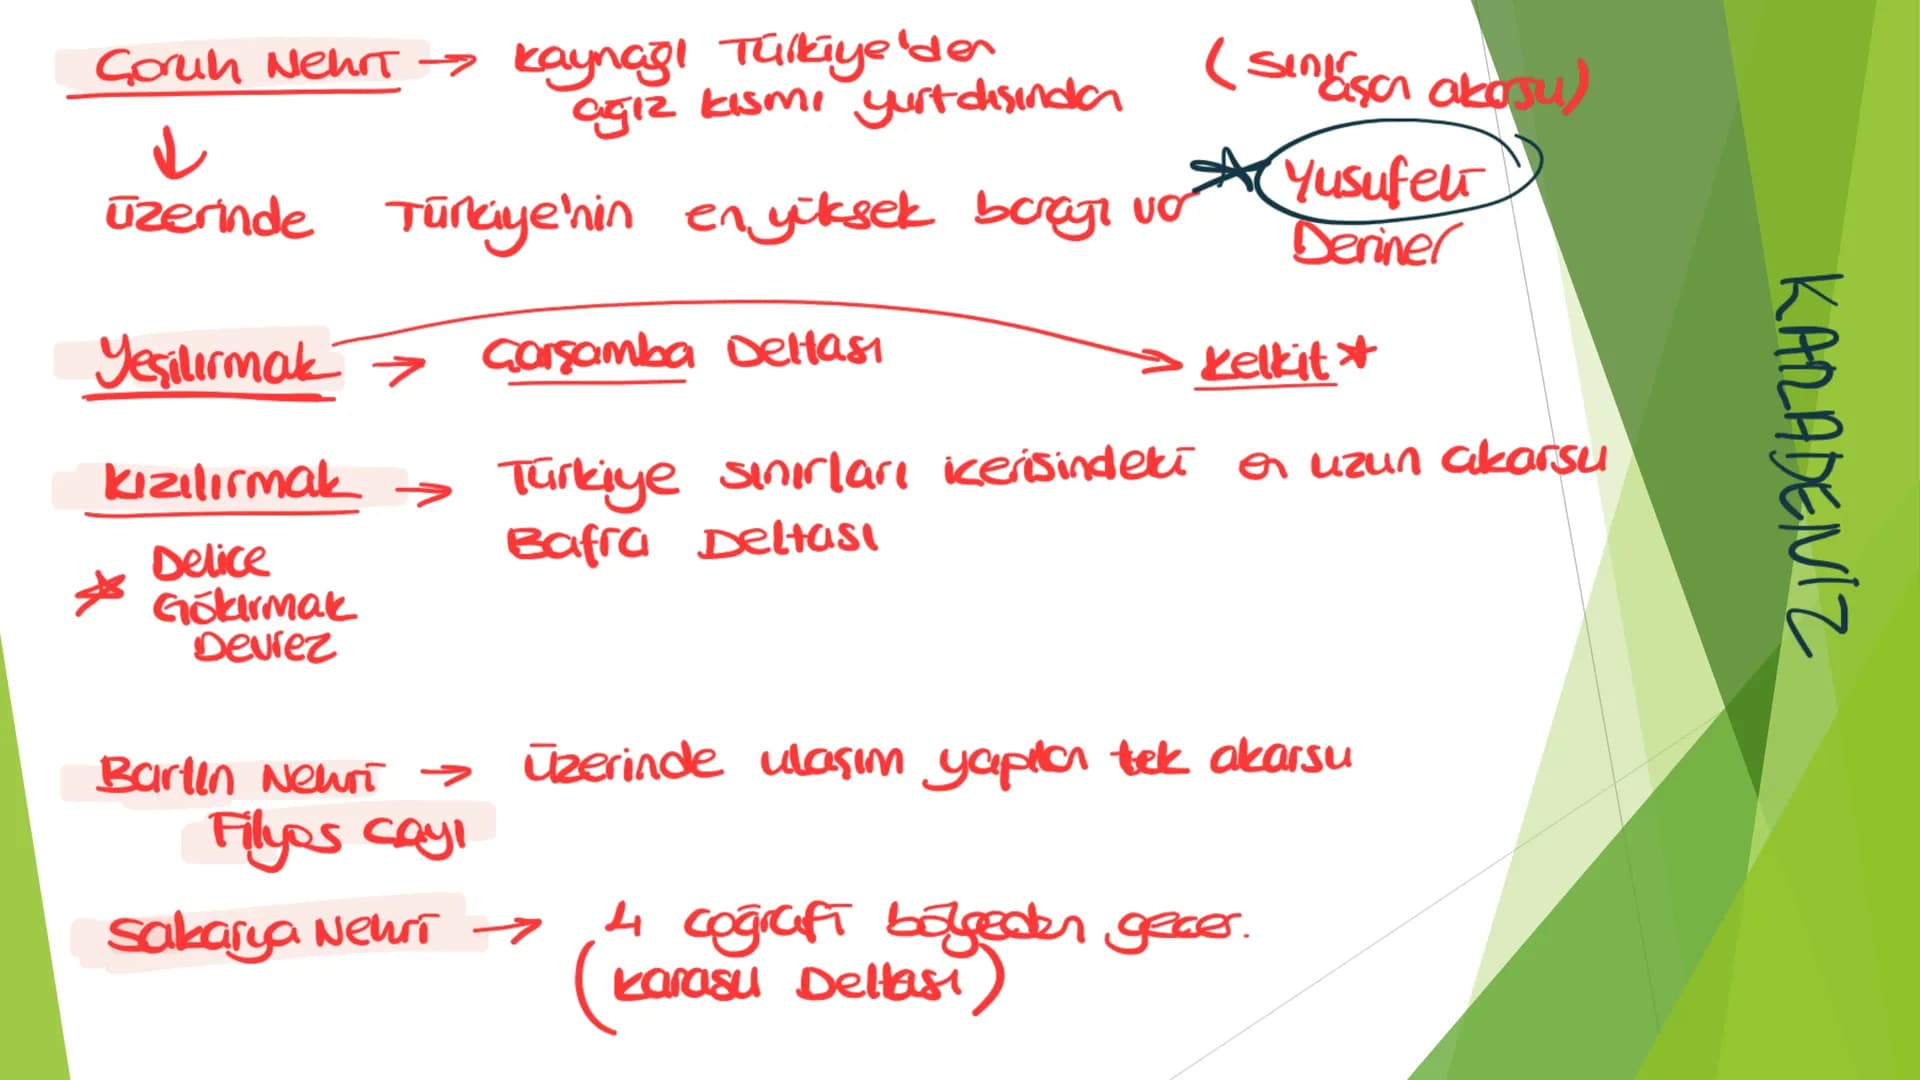 Çoruh Nehri → kaynağı Türkiye'den (sınır aşan akarsu)
ağız kısmı yurtdışından
↓
üzerinde Türkiye'nin en yüksek barajı var Yusufeli
Deriner
Yeşilırmak → Çarşamba Deltası → Kelkit *
Kızılırmak → Türkiye sınırları icerisindeki en uzun akarsu
Bafra Deltası
* Delice
Gökırmak
Devrez
Bartın Nehri → üzerinde ulaşım yapılan tek akarsu
Filyos Cayı
Sakarya Nehri → 4 coğrafi bölgeden gecer.
(Karasu Deltası)
KARADENİZ